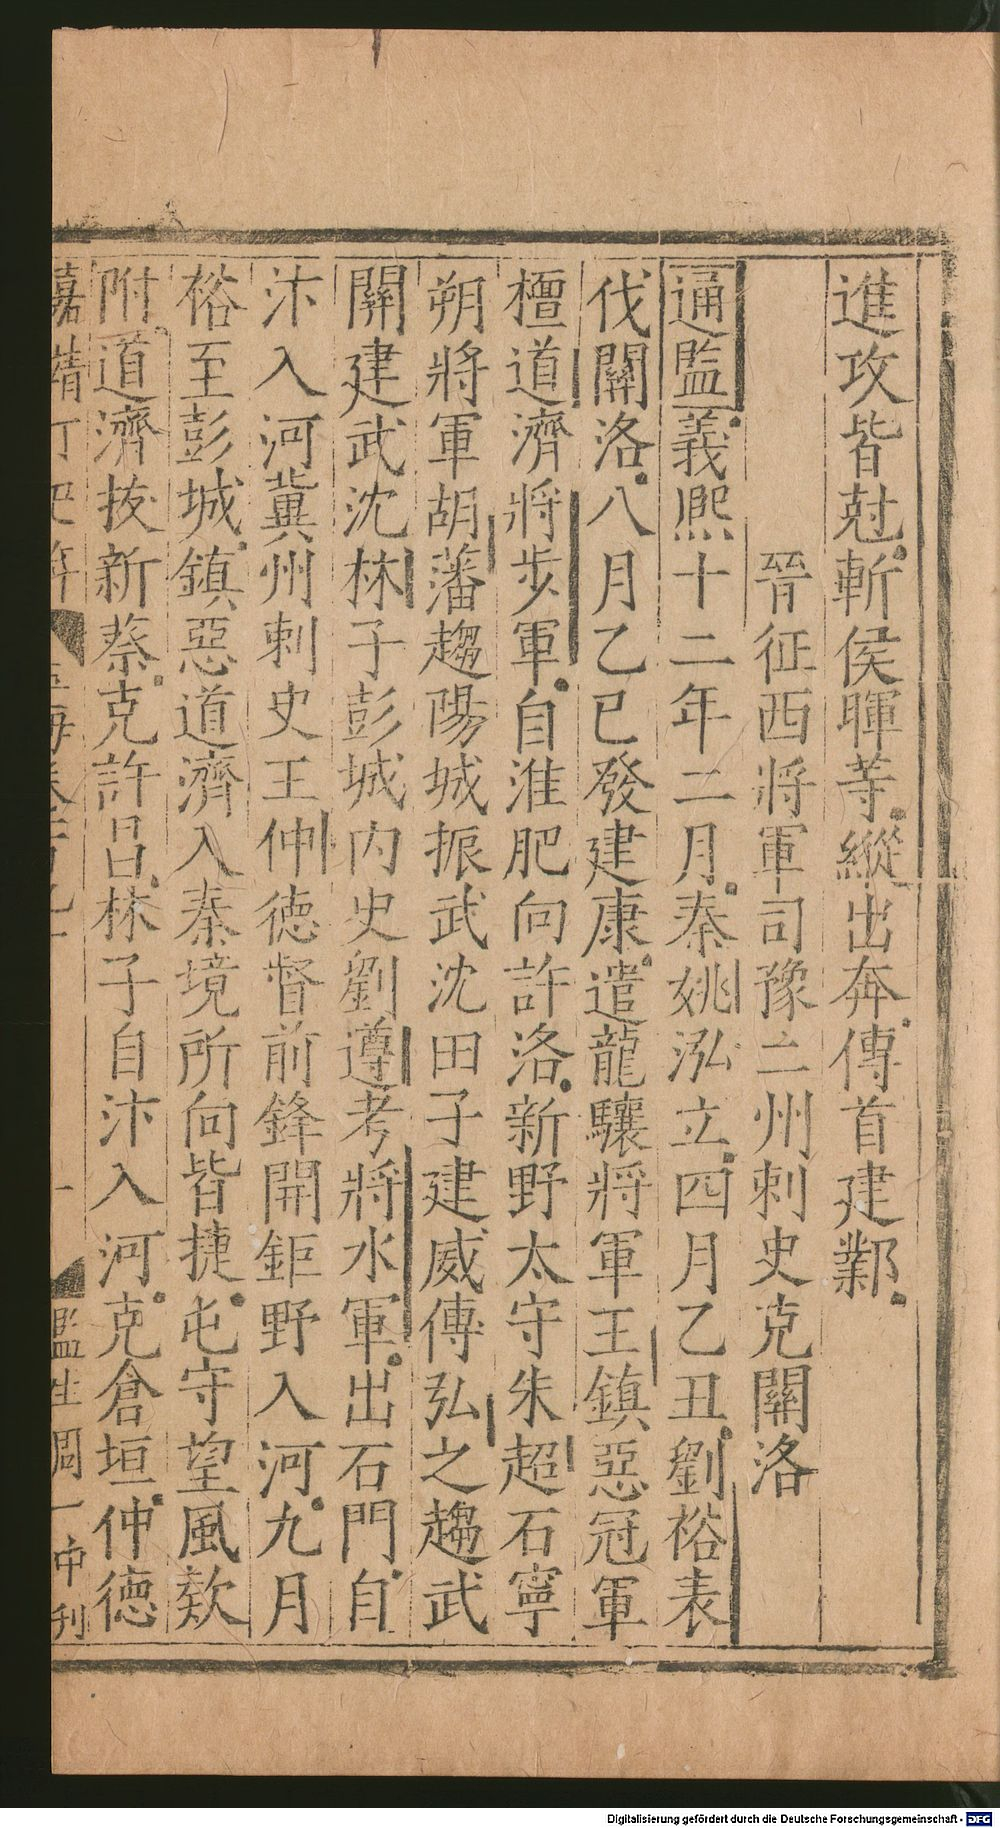 進攻皆尅斬侯暉等縱出奔傳首建鄴
晉征西將軍司豫二州刺史克關洛
通監義熈十二年二月秦姚泓立四月乙丑劉裕表
伐關洛八月乙巳發建康遣龍驤將軍王鎮惡冠軍
檀道濟將步軍自淮肥向許洛新野太守朱超石寧
朔將軍胡藩趨陽城振武沈田子建威傅弘之趨武
關建武沈林子彭城内史劉遵考將水軍出石門自
汴入河冀州刺史王仲德督前鋒開鉅野入河九月
裕至彭城鎮惡道濟入秦境所向皆捷屯守望風欵
附道濟拔新蔡克許昌林子自汴入河克倉垣仲德
嘉靖丁巳年
監生周一中刊
Digitalisierung gefördert durch die Deutsche Forschungsgemeinschaft - DFG